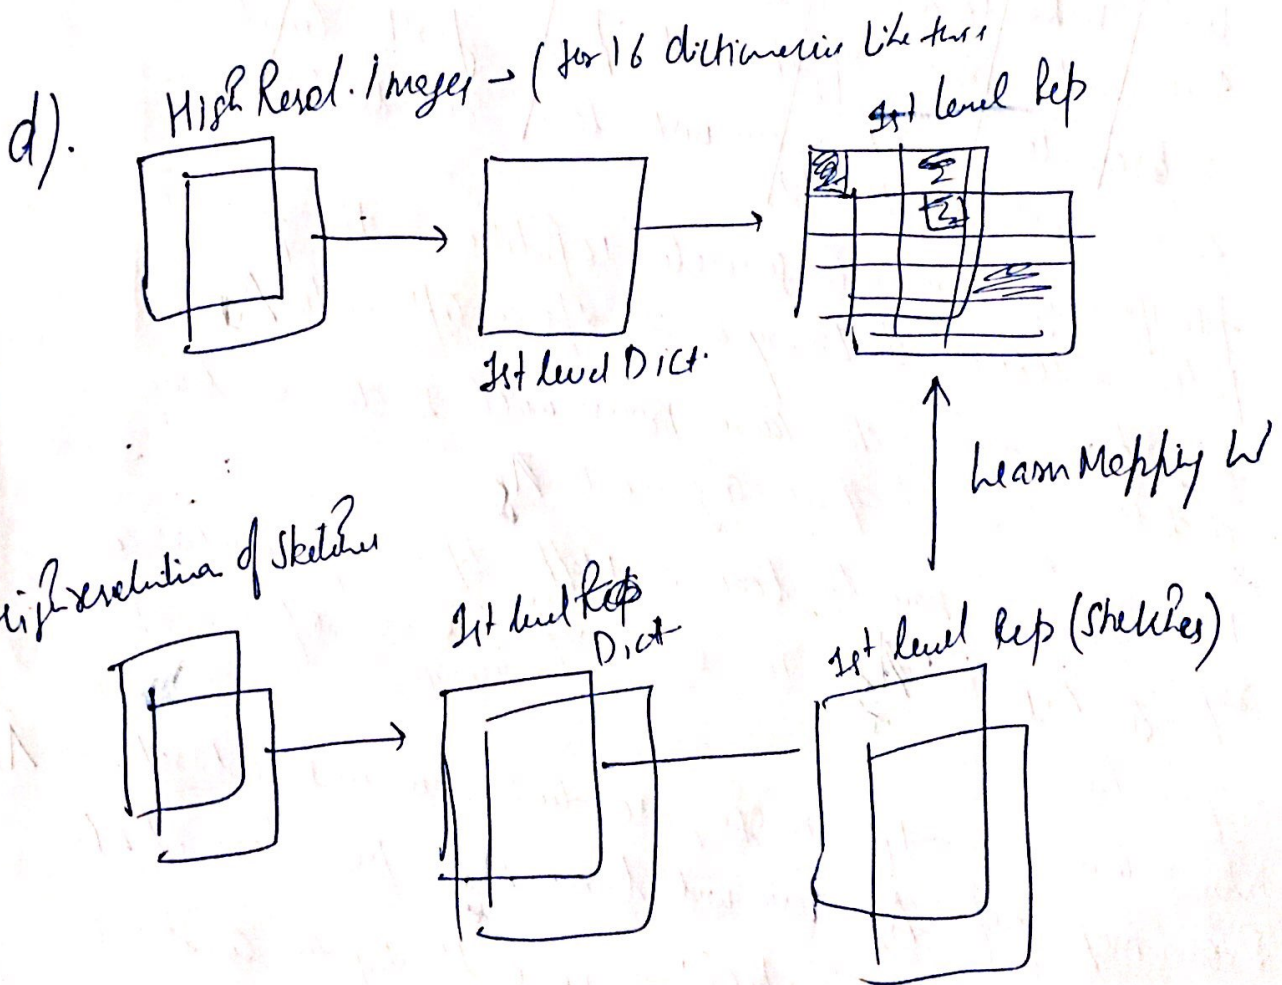 d).
High Resol. Images → (for 16 dictionaries like this
Ist level Rep
Ist level Dict.
Learn Mapping W
High resolution of Sketches
Ist level Rep
Dict
Ist level Rep (Sketches)